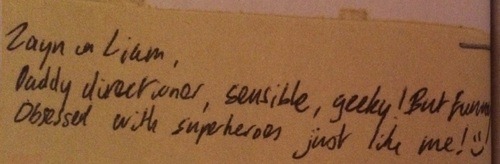 Zayn on Liam,
Daddy directioner, sensible, geeky! But funny
Obsessed with superheroes just like me! :)